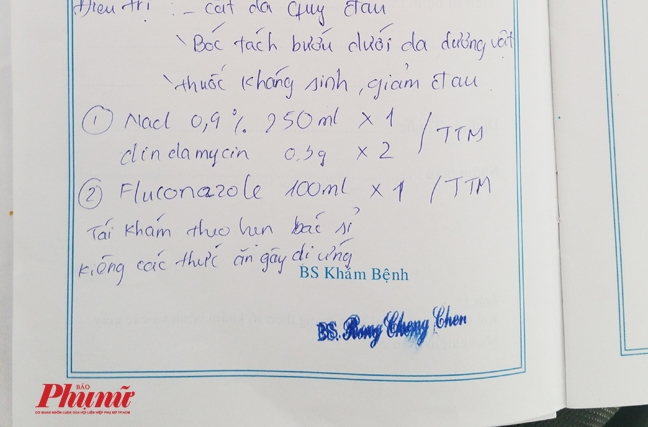 Điều trị : - cắt da quy đầu
\ Bóc tách bướu dưới da dương vật
\ thuốc kháng sinh, giảm đau
① Nacl 0,9% 250ml x 1 / TTM
clindamycin 0.3g x 2
② Fluconazole 100ml x 1 / TTM
Tái khám theo hẹn bác sĩ
kiêng các thức ăn gây dị ứng
BS Khám Bệnh
BS. Rong Cheng Chen
BÁO
Phụ nữ
CƠ QUAN NGÔN LUẬN CỦA HỘI LIÊN HIỆP PHỤ NỮ TP.HCM